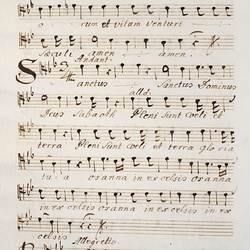 o rum et vitam venturi
sæculi amen amen.
Andant:
Sanctus Sanctus Dominus
allo:
Deus Sabaoth Pleni Sunt Coeli et
terra Pleni Sunt Coeli et terra gloria
tu i a osanna in excelsis osanna
in excelsis osanna in excelsis in ex
celsis Allegretto.